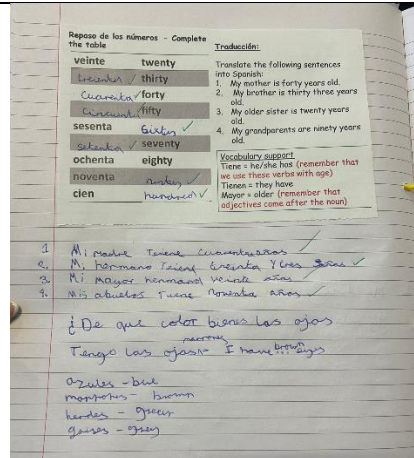 Repaso de los números - Complete the table
veinte twenty
treinta ✓ thirty
Cuarenta ✓ forty
Cincuenta ✓ fifty
sesenta Sixty ✓
setenta ✓ seventy
ochenta eighty
noventa ninty ✓
cien hundred ✓
Traducción:
Translate the following sentences
into Spanish:
1. My mother is forty years old.
2. My brother is thirty three years
old.
3. My older sister is twenty years
old.
4. My grandparents are ninety years
old.
Vocabulary support
Tiene = he/she has (remember that
we use these verbs with age)
Tienen = they have
Mayor = older (remember that
adjectives come after the noun)
1 Mi madre Tiene Cuarenta años ✓
2. Mi hermano Tiene treinta Y tres años ✓
3. Mi mayor hermana veinte años ✓
4. Mis abuelos Tiene noventa años ✓
¿De que color bienes las ojos
marrones
Tengo las ojos - I have brown eyes
azules - blue
marrones - brown
berdes - green
grises - grey